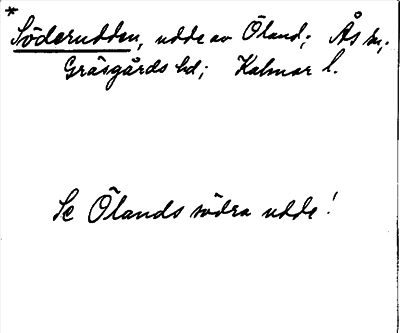 *
Söderudden, udde av Öland; Ås sn;
Gräsgårds hd; Kalmar l.
Se Ölands södra udde!